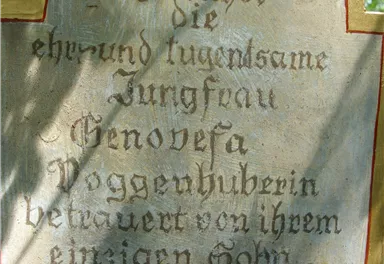 die
ehr und tugentsame
Jungfrau
Genovefa
Poggenhuberin
betrauert von ihrem
einzigen Sohn